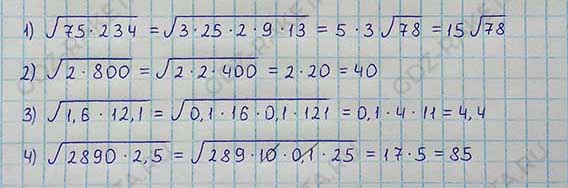 1) √75·234 = √3·25·2·9·13 = 5·3√78 = 15√78
2) √2·800 = √2·2·400 = 2·20 = 40
3) √1,6·12,1 = √0,1·16·0,1·121 = 0,1·4·11 = 4,4
4) √2890·2,5 = √289·10·0,1·25 = 17·5 = 85